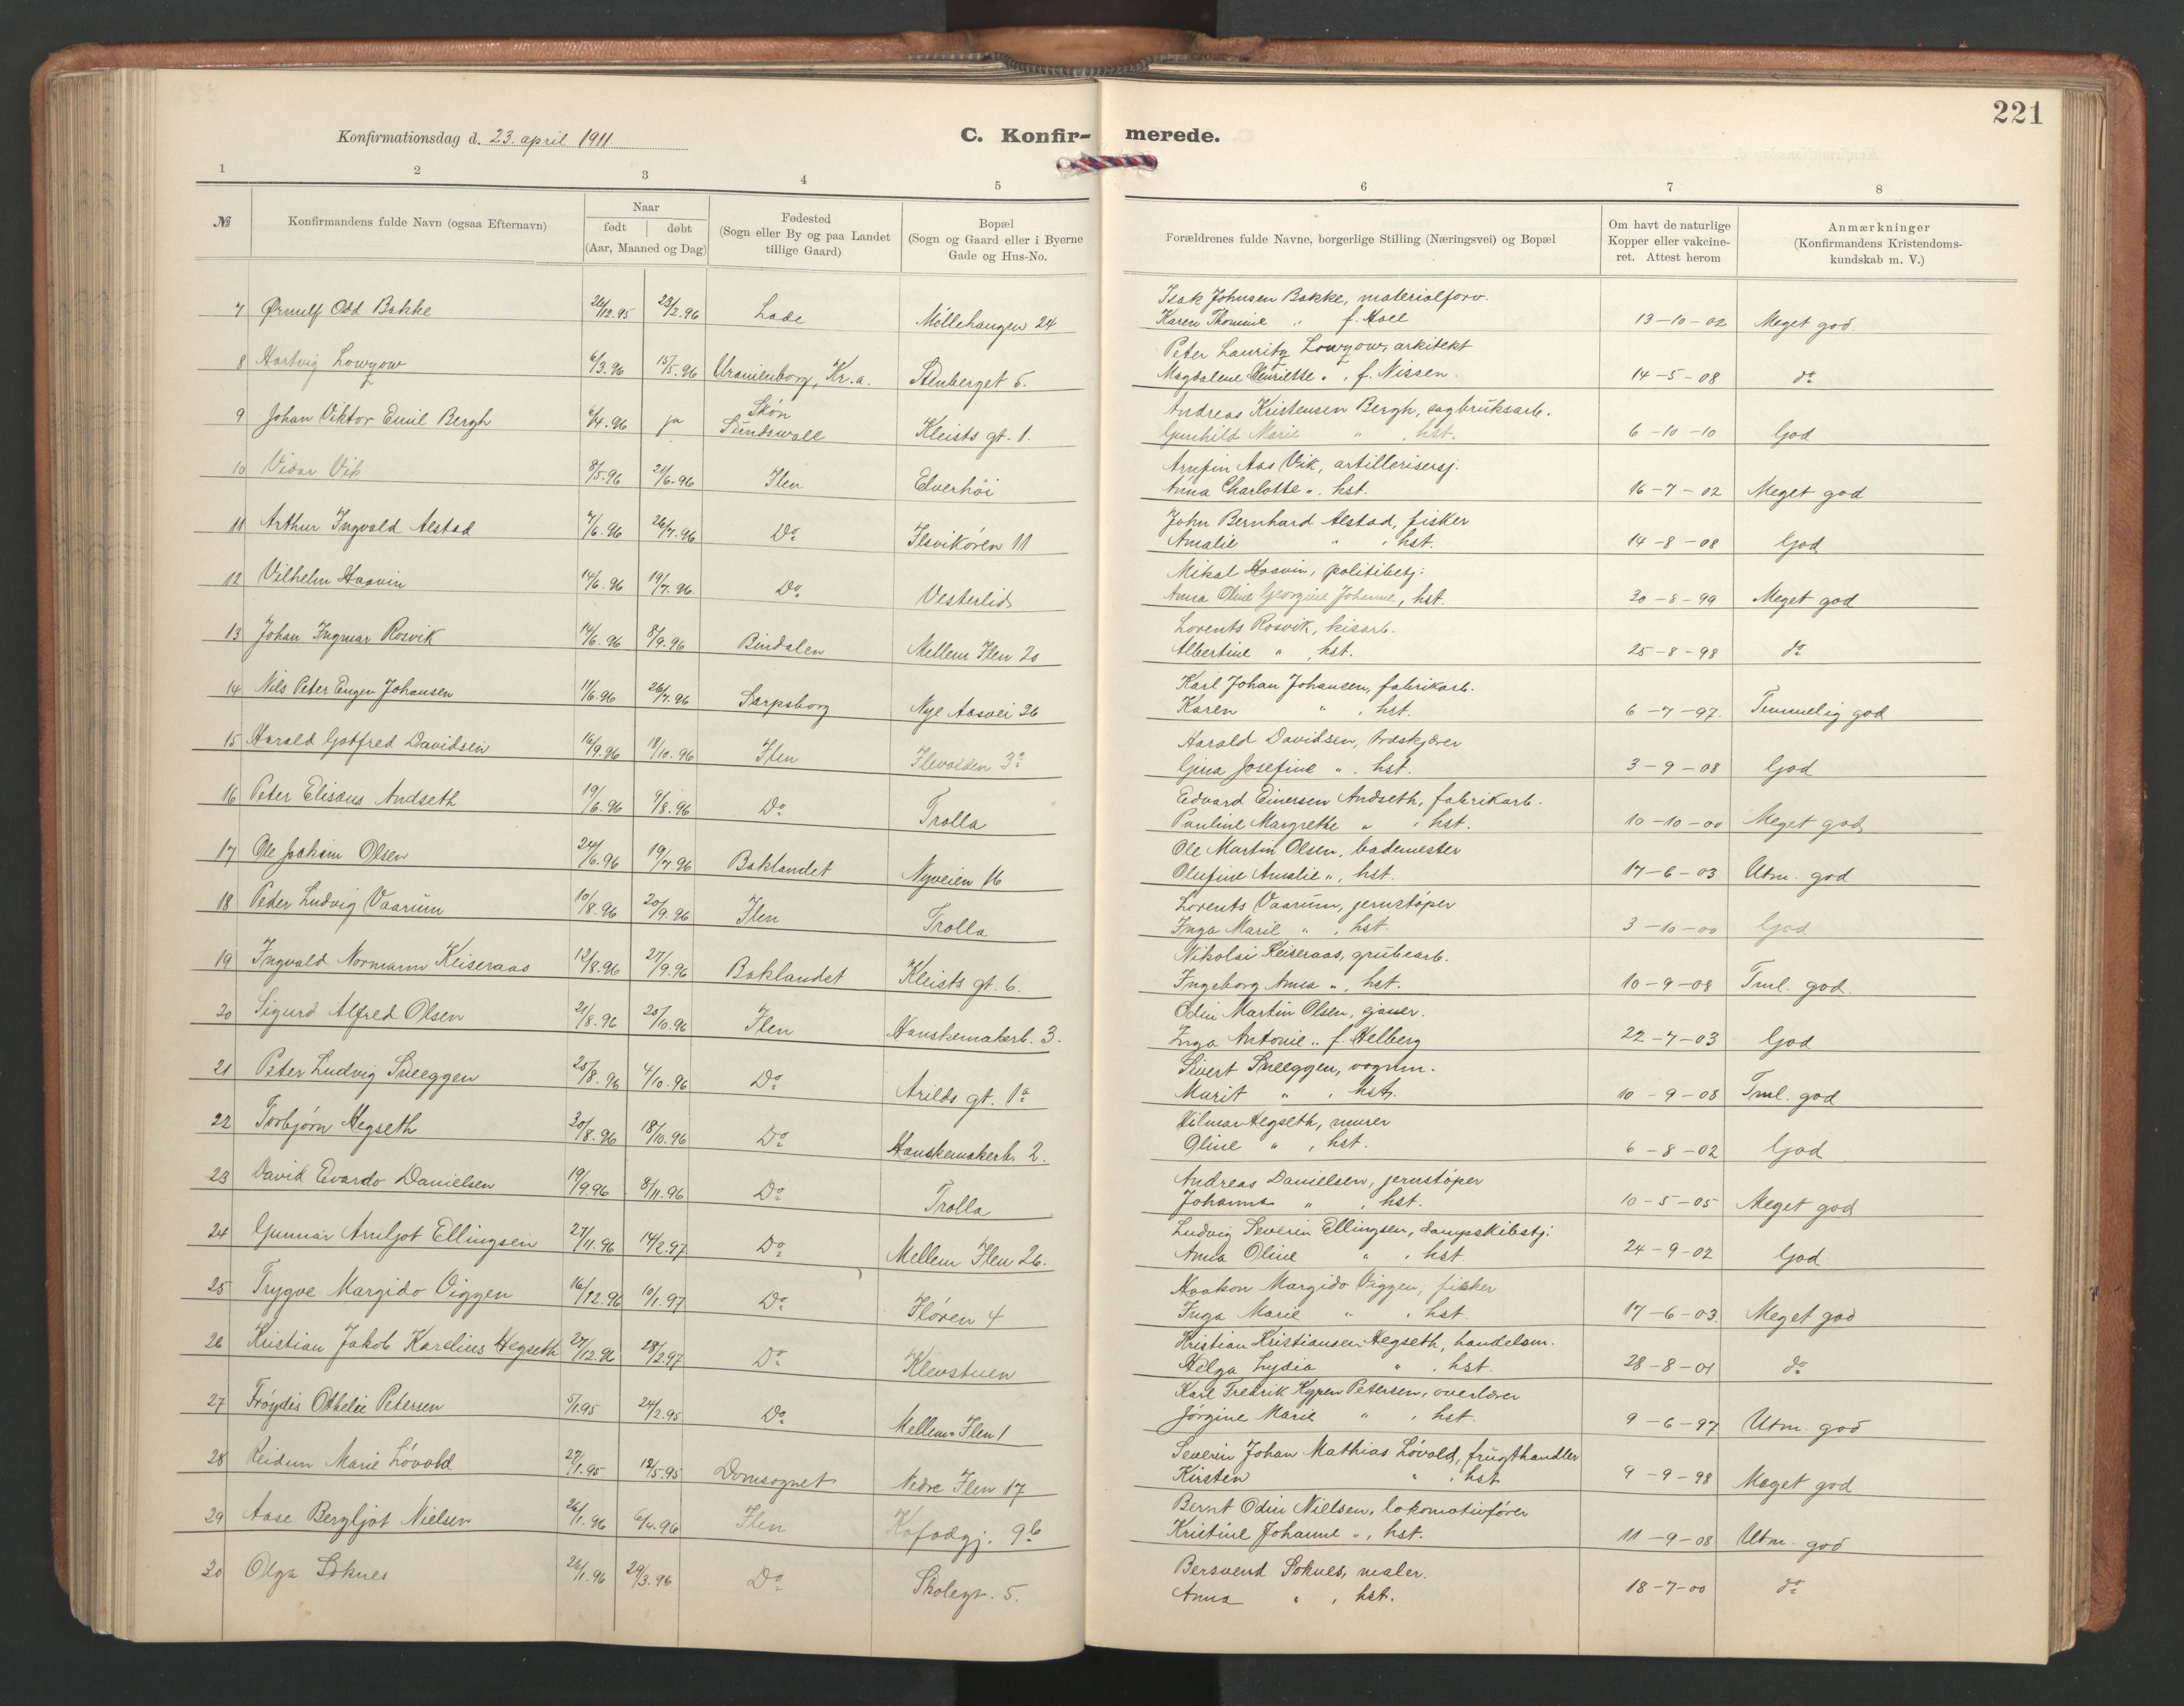 221
Konfirmationsdag d. 23. april 1911
C. Konfir- merede.
1 2 3 4 5 6 7 8
№ Konfirmandens fulde Navn (ogsaa Efternavn) Naar født døbt (Aar, Maaned og Dag) Fødested (Sogn eller By og paa Landet tillige Gaard) Bopæl (Sogn og Gaard eller i Byerne Gade og Hus-No. Forældrenes fulde Navne, borgerlige Stilling (Næringsvei) og Bopæl Om havt de naturlige Kopper eller vakcineret. Attest herom Anmærkninger (Konfirmandens Kristendomskundskab m. V.)
7 Ørnulf Odd Bakke 26/12.95 23/2.96 Lade Møllehaugen 24 Isak Johnsen Bakke, materialforv.
Karen Thomine " f. Hoel 13-10-02 Meget god.
8 Hartvig Lowzow 6/3.96 15/5.96 Uranienborg, Kr.a. Stenberget 5. Peter Lauritz Lowzow, arkitekt
Magdalene Henriette ", f. Nissen. 14-5-08 do
9 Johan Viktor Emil Bergh 6/4.96 ja Skön Sundswall Kleists gt. 1. Andreas Kristensen Bergh, sagbruksarb.
Gunhild Marie ", hst. 6-10-10 God
10 Vidar Vik 8/5.96 21/6.96 Ilen Elverhöi Arnfin Aas Vik, artillerisersj.
Anna Charlotte ", hst. 16-7-02 Meget god
11 Arthur Ingvald Alstad 7/6.96 26/7.96 Do Ilsvikören 11 John Bernhard Alstad, fisker
Amalie ", hst. 14-8-08 God
12 Vilhelm Haavin 14/6.96 19/7.96 Do Vesterlid Mikal Haavin, politibetj.
Anna Oline Georgine Johanne, hst. 30-8-99 Meget god
13 Johan Ingmar Rosvik 14/6.96 8/9.96 Bindalen Mellem Ilen 20 Lorents Rosvik, kisarb.
Albertine ", hst. 25-8-98 do
14 Nils Peter Eugen Johansen 11/6.96 26/7.96 Sarpsborg Nye Aasvei 26 Karl Johan Johansen, fabrikarb.
Karen ", hst. 6-7-97. Temmelig god
15 Harald Gotfred Davidsen 16/9.96 18/10.96 Ilen Ilevolden 3a Harald Davidsen, træskjærer
Gina Josefine ", hst. 3-9-08 God
16 Peter Elisæus Andseth 19/6.96 9/8.96 Do Trolla Edvard Einersen Andseth, fabrikarb.
Pauline Margrethe ", hst. 10-10-00 Meget god
17 Ole Joakim Olsen 24/6.96 19/7.96 Baklandet Nyveien 16 Ole Martin Olsen, bademester
Olufine Amalie ", hst. 17-6-03 Utm. god
18 Peder Ludvig Vaarum 10/8.96 20/9.96 Ilen Trolla Lorents Vaarum, jernstöper
Inga Marie ", hst. 3-10-00 God
19 Ingvald Normann Keiseraas 12/8.96 27/9.96 Baklandet Kleists gt. 6. Nikolai Keiseraas, grubearb.
Ingeborg Anna ", hst. 10-9-08 Tml. god.
20 Sigurd Alfred Olsen 21/8.96 25/10.96 Ilen Hanskemakerb. 3. Odin Martin Olsen, garver.
Inga Antonie " f. Helberg 22-7-03 God
21 Peter Ludvig Sneeggen 25/8.96 4/10.96 Do Arilds gt. 1a Sivert Sneeggen, vognm.
Marit ", hst. 10-9-08 Tml. god
22 Torbjørn Hegseth 30/8.96 18/10.96 Do Hanskemakerb. 2. Hilmar Hegseth, murer
Oline ", hst. 6-8-02 God
23 David Evardo Danielsen 19/9.96 8/11.96 Do Trolla Andreas Danielsen, jernstöper
Johanna ", hst. 10-5-05 Meget god
24 Gunnar Arnljot Ellingsen 27/11.96 14/2.97 Do Mellem Ilen 26. Ludvig Severin Ellingsen, dampskibstj.
Anna Oline ", hst. 24-9-02 God
25 Trygve Margido Viggen 16/12.96 10/1.97 Do Ilören 4 Haakon Margido Viggen, fisker
Inga Marie ", hst. 17-6-03. Meget god
26 Kristian Jakob Karelius Hegseth 27/12.96 28/2.97 Do Klevstuen Kristian Kristiansen Hegseth, handelsm.
Helga Lydia ", hst. 28-8-01 do
27 Fröydis Othelie Petersen 5/1.95 24/2.95 Do Mellem Ilen 1 Karl Fredrik Kypen Petersen, overlærer
Jörgine Marie ", hst. 9-6-97 Utm. god
28 Reidun Marie Lövold 27/1.95 12/5.95 Domsognet Nedre Ilen 17 Severin Johan Mathias Lövold, frugthandler
Kirsten ", hst 9-9-98 Meget god
29 Aase Bergljot Nielsen 26/1.96 6/4.96 Ilen Kofodgj. 9b Bernt Odin Nielsen, lokomotivförer
Kristine Johanne ", hst. 11-9-08 Utm. god
30 Olga Soknes 26/1.96 29/3.96 Do Skolegt. 5. Bersvend Soknes, maler.
Anna ", hst. 18-7-00 do